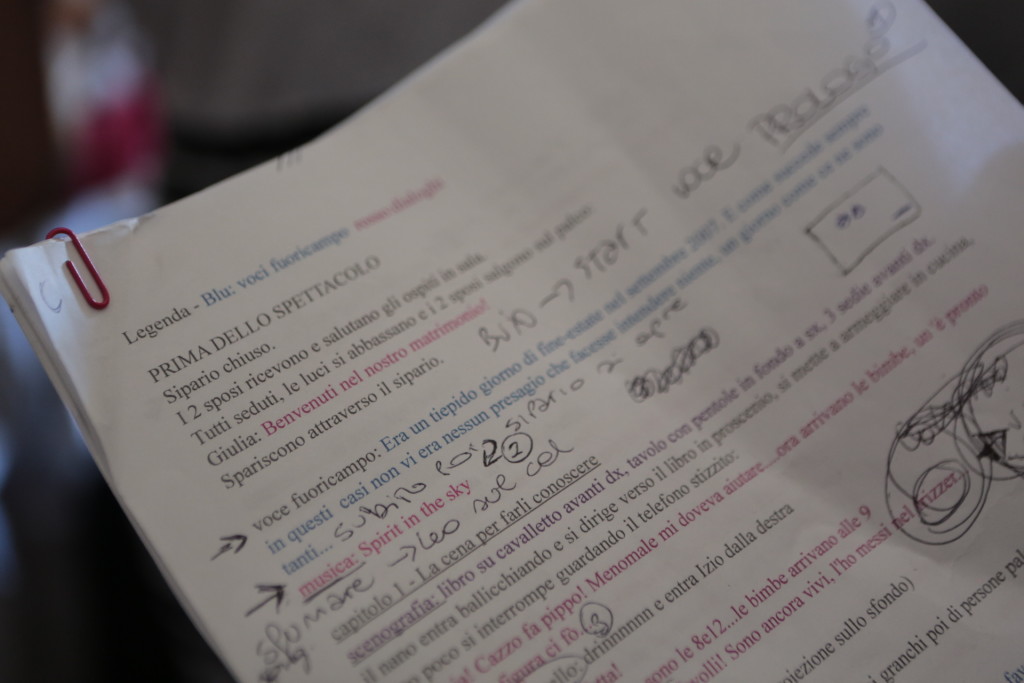 voce PROLOGO
Legenda - Blu: voci fuoricampo rosso:dialoghi
PRIMA DELLO SPETTACOLO
Sipario chiuso.
I 2 sposi ricevono e salutano gli ospiti in sala.
Tutti seduti, le luci si abbassano e i 2 sposi salgono sul palco.
Giulia: Benvenuti nel nostro matrimonio!
Spariscono attraverso il sipario.
Buio → START
voce fuoricampo: Era un tiepido giorno di fine-estate nel settembre 2007. E come succede sempre
in questi casi non vi era nessun presagio che facesse intendere niente, un giorno come ce ne sono
tanti... subito poi sipario si apre
musica: Spirit in the sky
2
→ Leo sul col
capitolo 1 - La cena per farli conoscere
scenografia: libro su cavalletto avanti dx, tavolo con pentole in fondo a sx, 3 sedie avanti dx.
il nano entra ballicchiando e si dirige verso il libro in proscenio, si mette a armeggiare in cucina,
poco si interrompe guardando il telefono stizzito:
Cazzo fa pippo! Menomale mi doveva aiutare...ora arrivano le bimbe, un'è pronto
figura ci fo. 3
drinnnnn e entra Izio dalla destra
sono le 8e12...le bimbe arrivano alle 9
Sono ancora vivi, l'ho messi nel frizzer.
sullo sfondo)
i granchi poi di persone